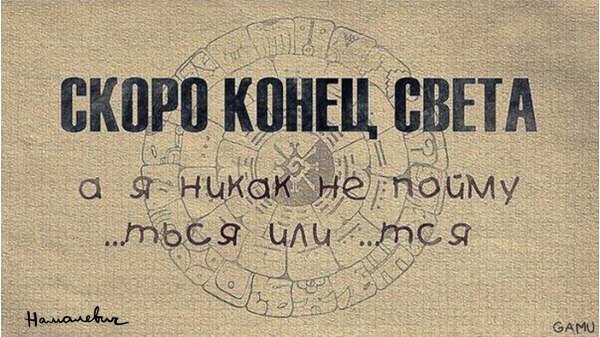 СКОРО КОНЕЦ СВЕТА
а я никак не пойму
...ться или ...тся
Намалевич
GAMU